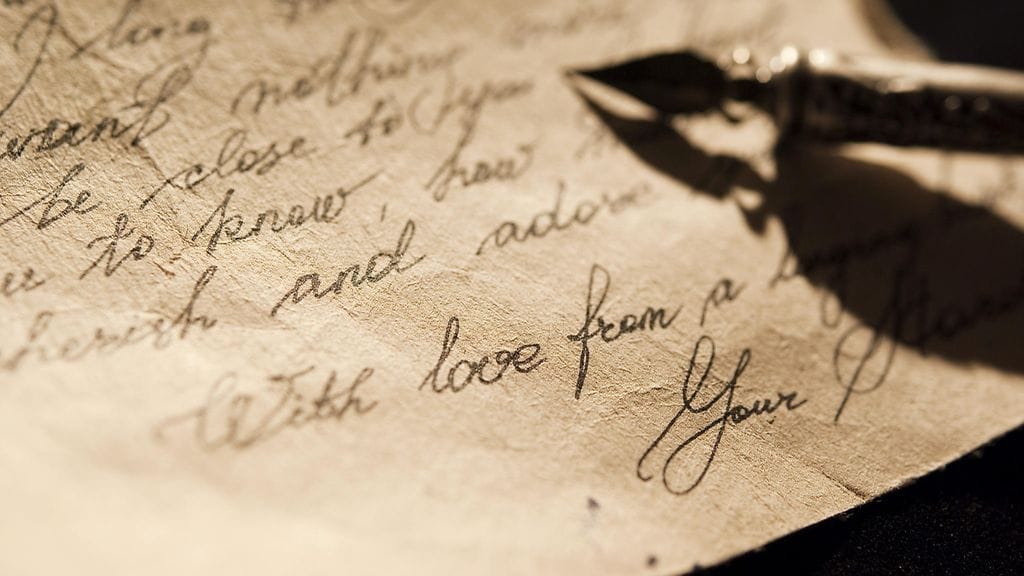 I long
want nothing
be close to you
to know, how
cherish and adore
With love from a
Your